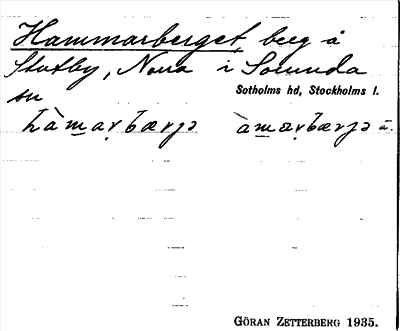 Hammarberget, berg å
Stutby, Nora i Sorunda
sn Sotholms hd, Stockholms l.
hàmarbærjə àmarbærjə ä.
GÖRAN ZETTERBERG 1935.